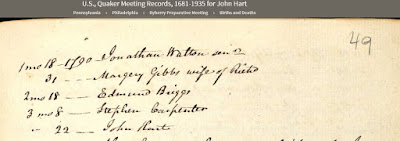 U.S., Quaker Meeting Records, 1681-1935 for John Hart
Pennsylvania > Philadelphia > Byberry Preparative Meeting > Births and Deaths
49
1 mo 18 - 1790 - Jonathan Watton senr
31 - - - Margery Gibbs wife of Richd
2 mo 18 - - Edmund Briggs
3 mo 8 - - Stephen Carpenter
" 22 - - John Hart